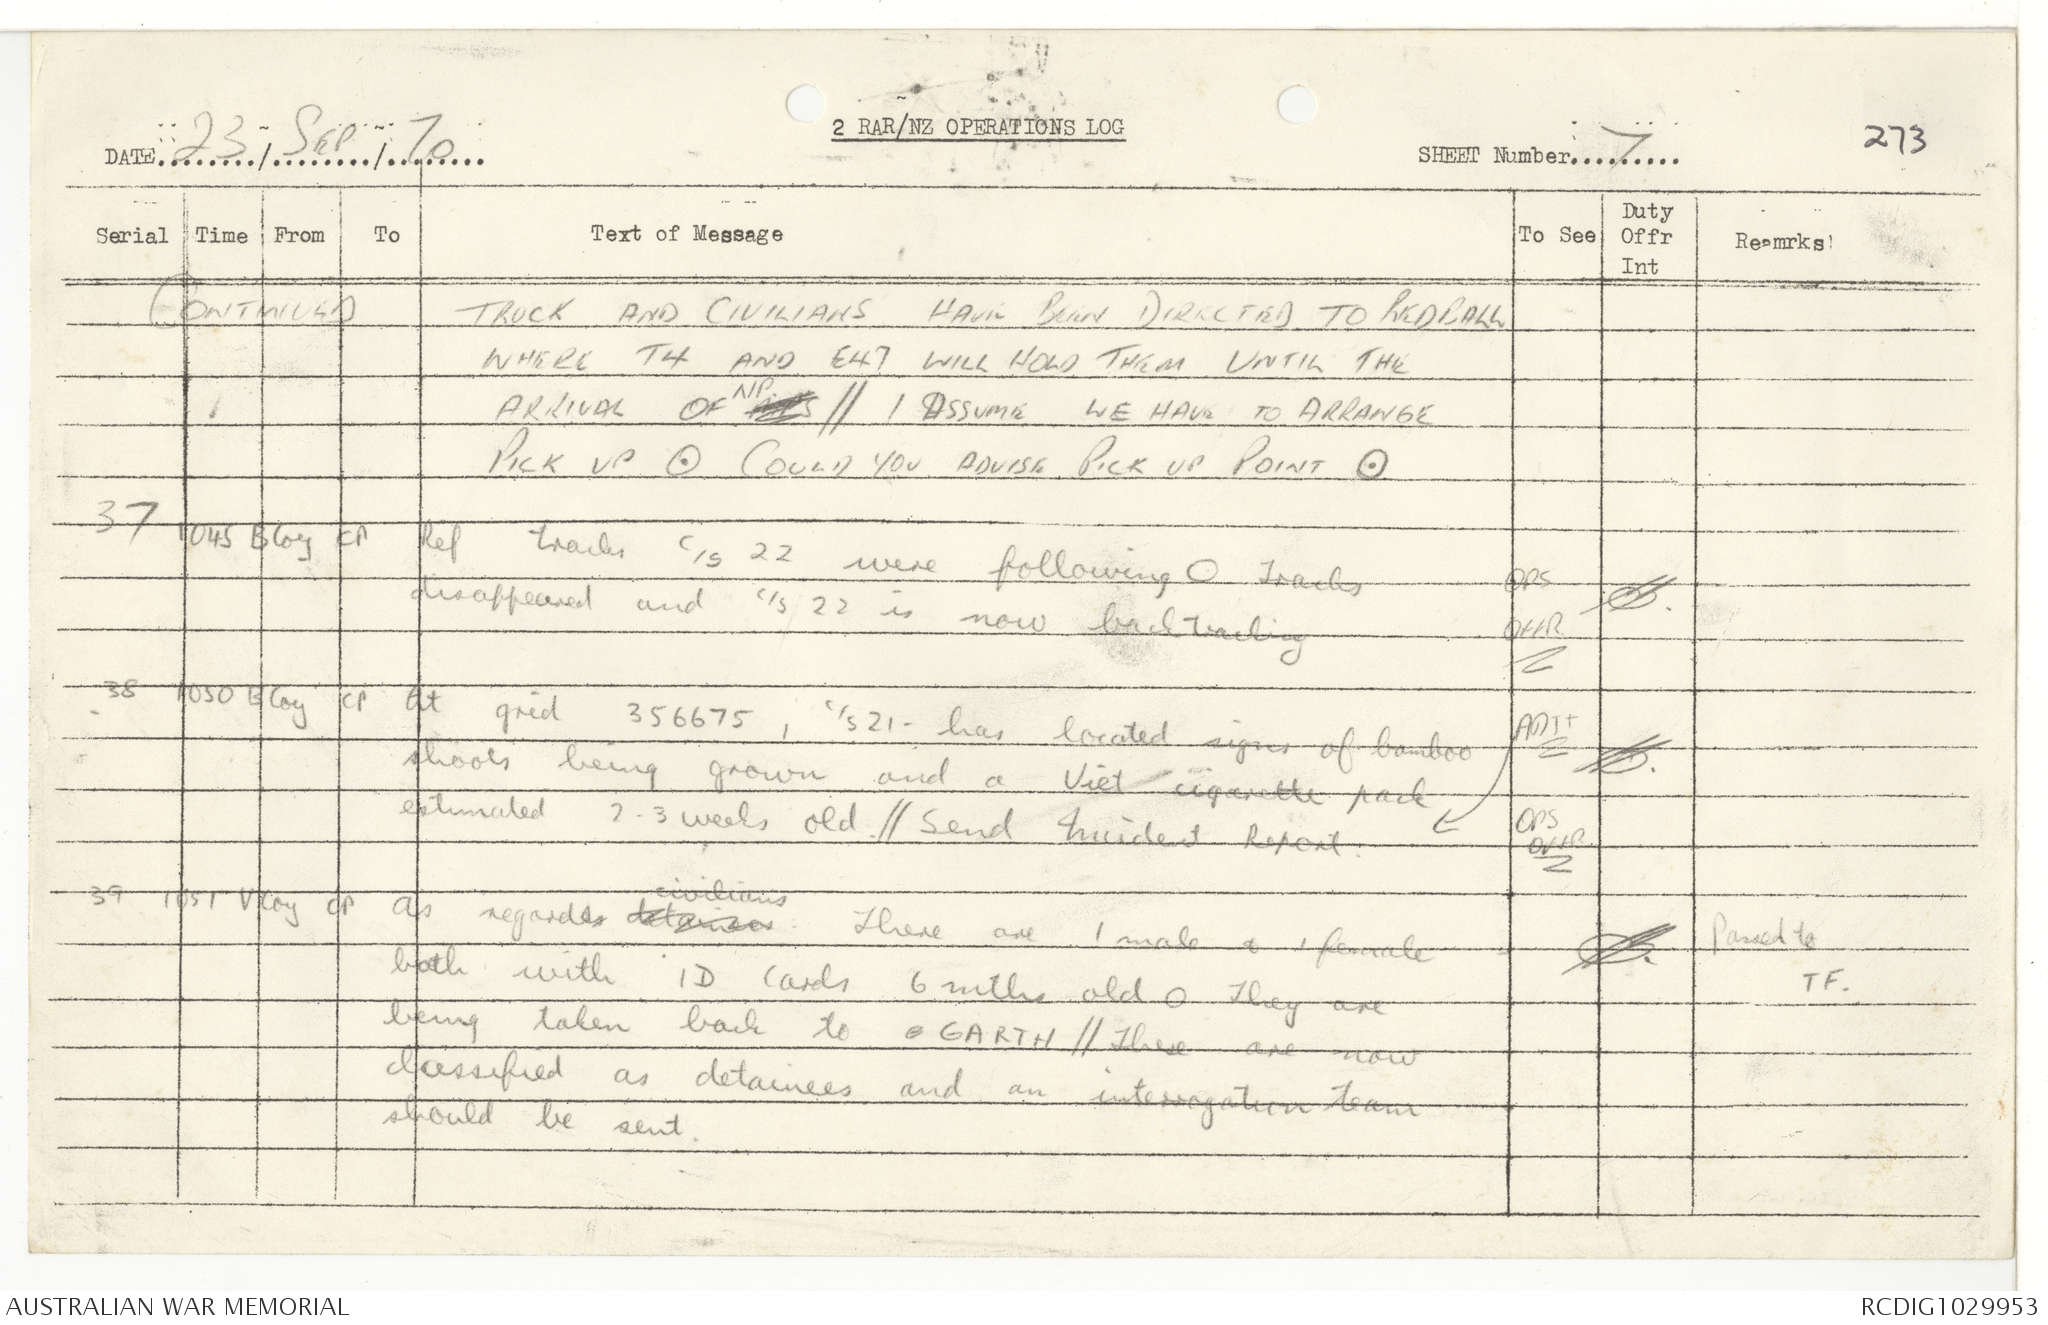 DATE 23 / Sep / 70
2 RAR/NZ OPERATIONS LOG
SHEET Number 7
273
Serial Time From To Text of Message To See Duty Offr Int Reamrks
CONTINUED TRUCK AND CIVILIANS HAVE BEEN DIRECTED TO REDBALL
WHERE T4 AND E47 WILL HOLD THEM UNTIL THE
ARRIVAL OF NP // I ASSUME WE HAVE TO ARRANGE
PICK UP ⊙ COULD YOU ADVISE PICK UP POINT ⊙
37 1045 B Coy CP Ref tracks c/s 22 were following O Tracks OPS
disappeared and c/s 22 is now backtracking
38 1050 B Coy CP At grid 356675, c/s 21- has located signs of bamboo
shoots being grown and a Viet cigarette pack
estimated 2-3 weeks old. // Send Incident Report. OPS
39 1051 V Coy CP As regards civilians. There are 1 male & 1 female Passed to
both with ID Cards 6 mths old O They are TF.
being taken back to GARTH // These are now
classified as detainees and an interrogation team
should be sent.
AUSTRALIAN WAR MEMORIAL
RCDIG1029953